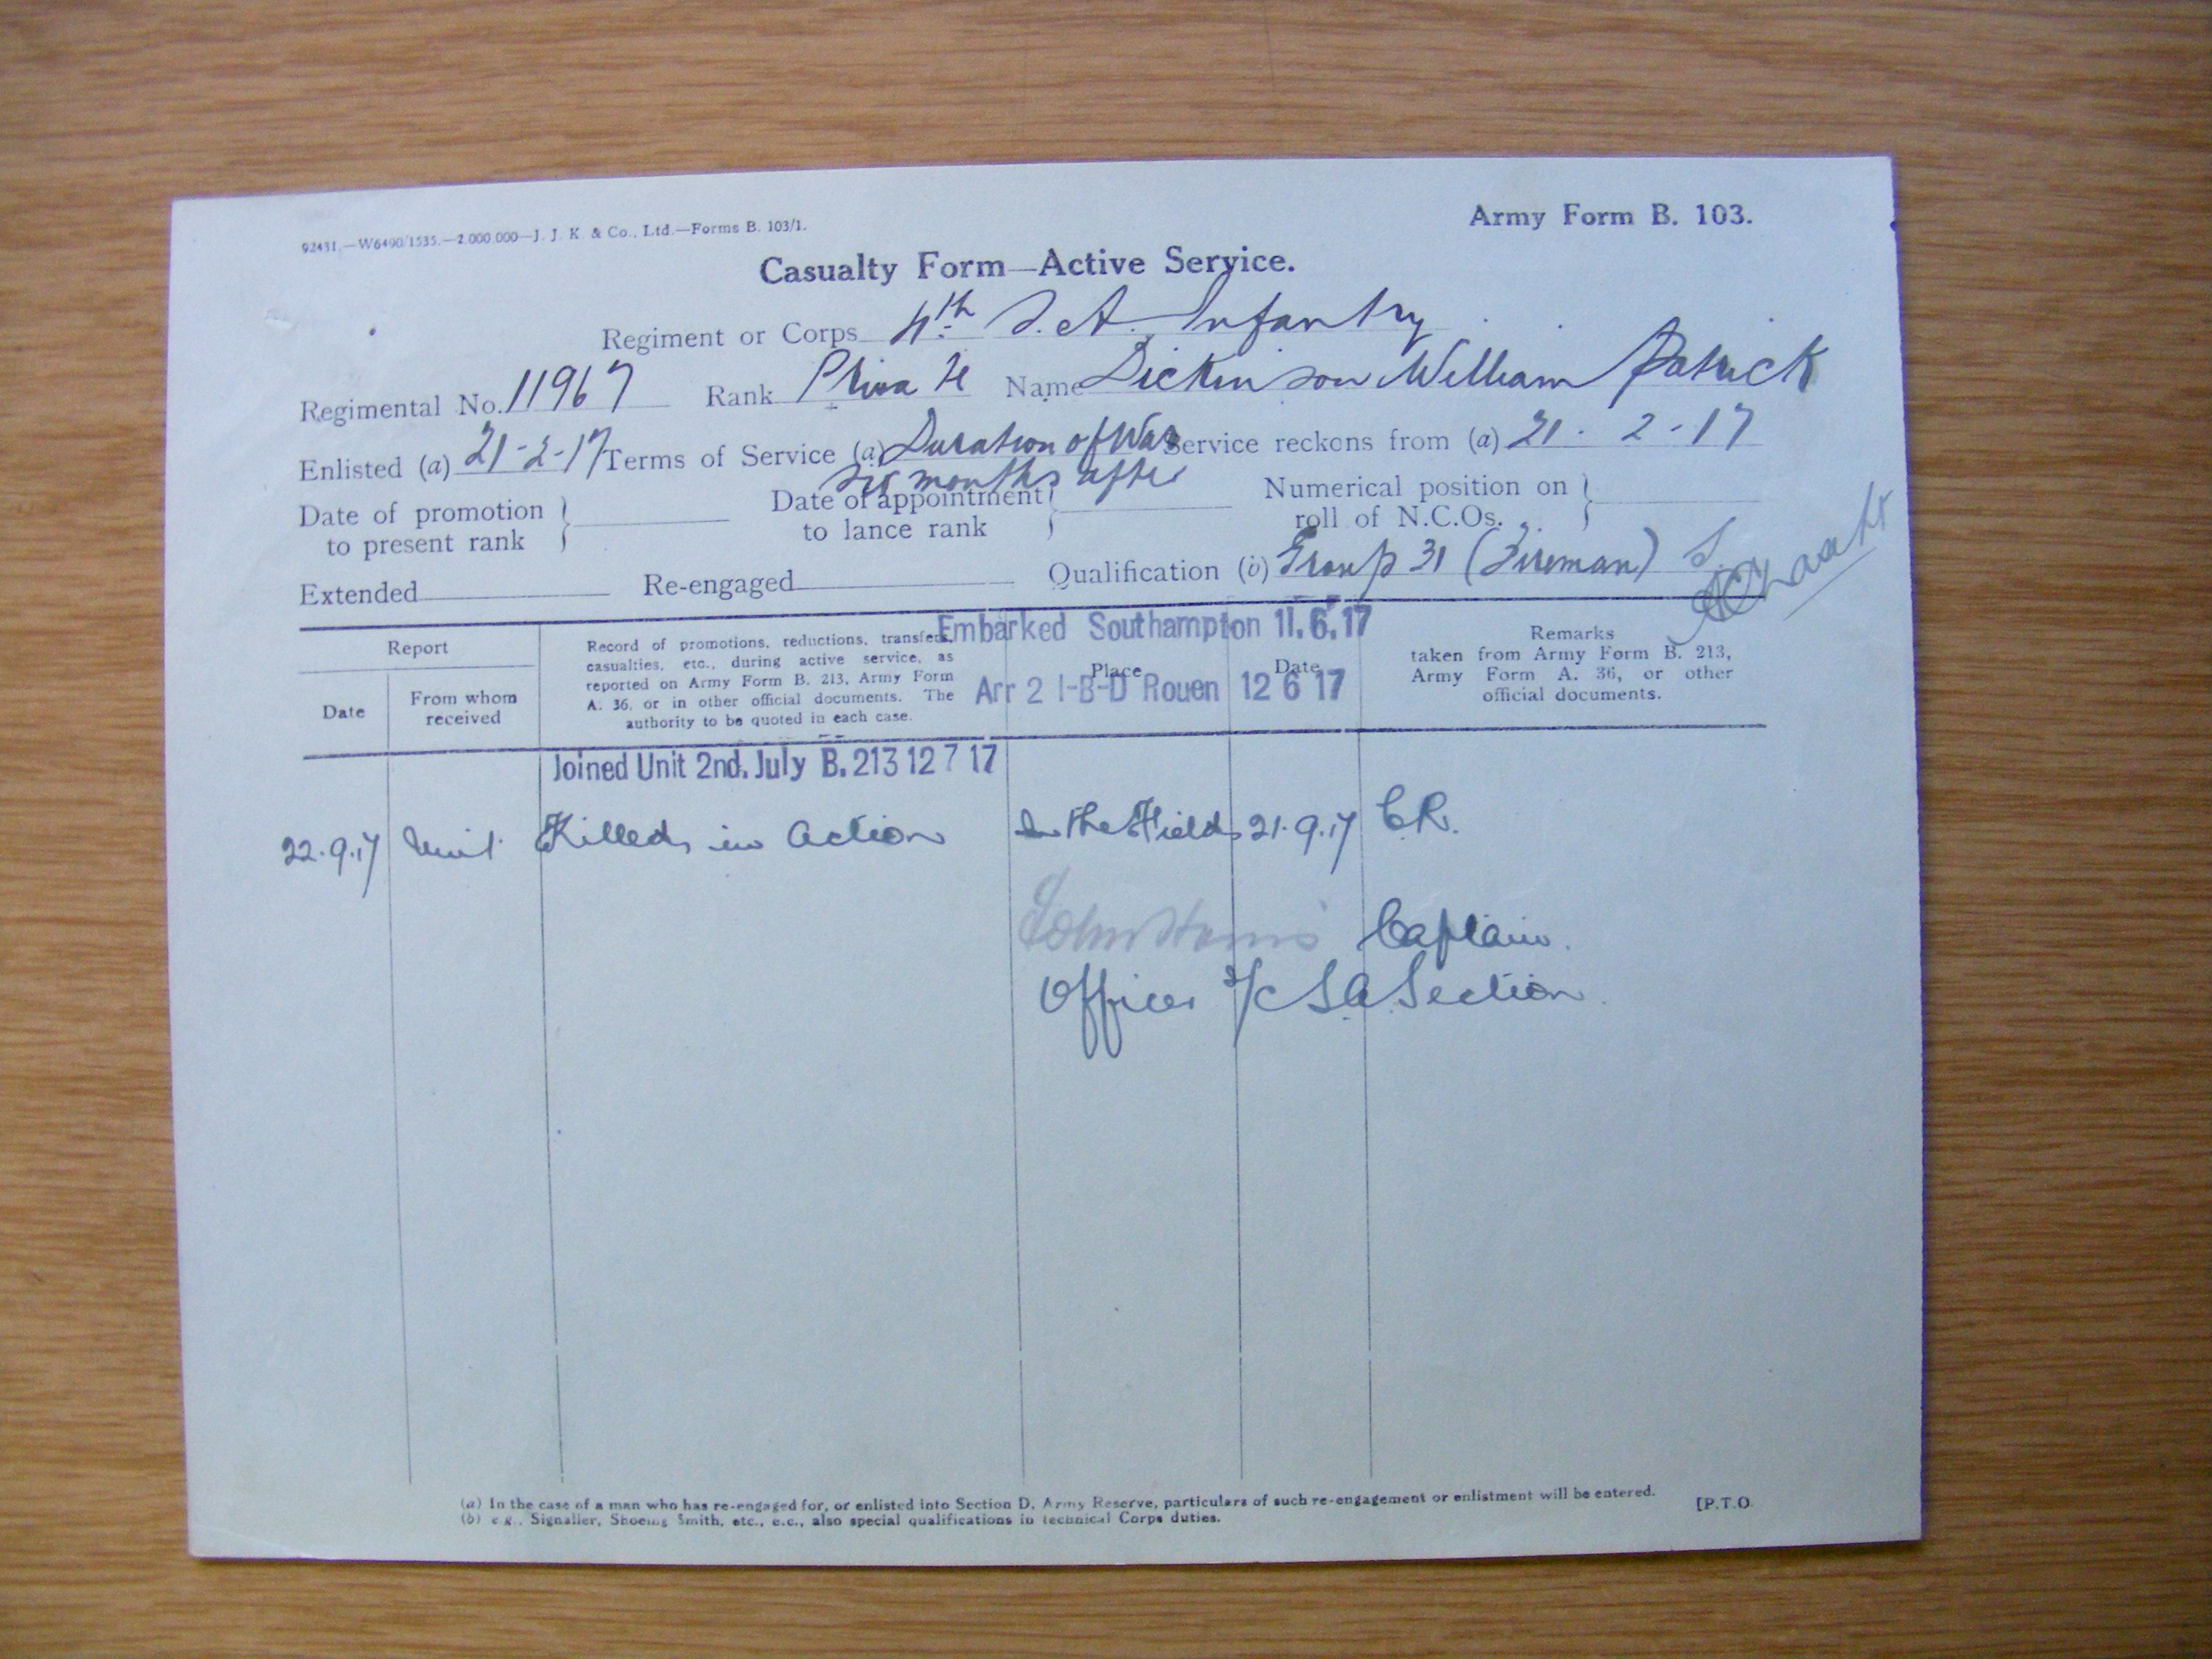 92431.—W6490/1535.—2,000,000—J. J. K. & Co., Ltd.—Forms B. 103/1.
Army Form B. 103.
Casualty Form—Active Service.
Regiment or Corps 4th S.A. Infantry
Regimental No. 11967 Rank Private Name Dickinson William Patrick
Enlisted (a) 21-2-17 Terms of Service (a) Duration of War Service reckons from (a) 21-2-17
six months after
Date of promotion to present rank
Date of appointment to lance rank
Numerical position on roll of N.C.Os.
Extended Re-engaged Qualification (b) Group 31 (Fireman)
Embarked Southampton 11.6.17
Report
Date
From whom received
Record of promotions, reductions, transfers,
casualties, etc., during active service, as
reported on Army Form B. 213, Army Form
A. 36, or in other official documents. The
authority to be quoted in each case.
Place
Date
Arr 2 I-B-D Rouen 12 6 17
Remarks
taken from Army Form B. 213,
Army Form A. 36, or other
official documents.
Joined Unit 2nd. July B. 213 12 7 17
22.9.17 Unit Killed in Action In the Field 21.9.17 C.R.
Captain.
Officer i/c S.A. Section.
(a) In the case of a man who has re-engaged for, or enlisted into Section D, Army Reserve, particulars of such re-engagement or enlistment will be entered.
(b) e.g., Signaller, Shoeing Smith, etc., etc., also special qualifications in technical Corps duties.
[P.T.O.